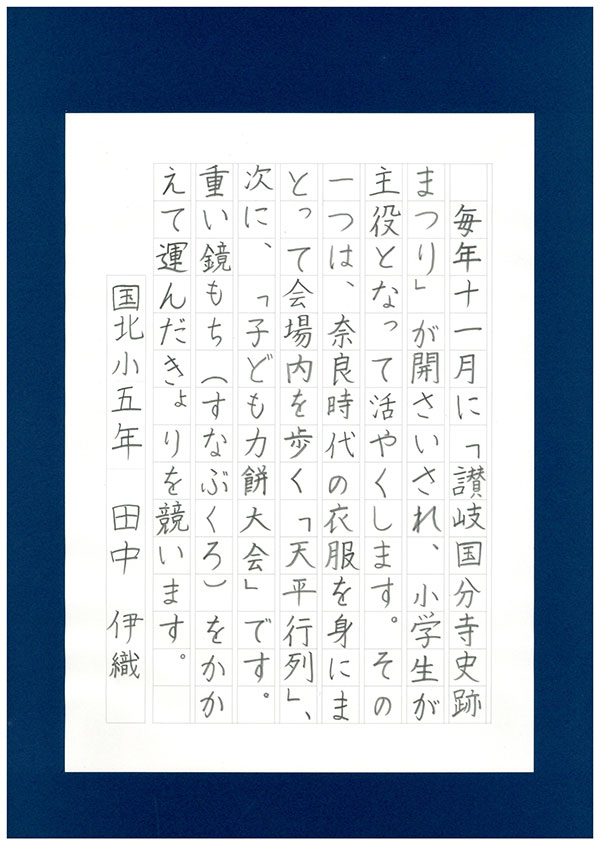 毎年十一月に「讃岐国分寺史跡
まつり」が開さいされ、小学生が
主役となって活やくします。その
一つは、奈良時代の衣服を身にま
とって会場内を歩く「天平行列」、
次に、「子ども力餅大会」です。
重い鏡もち（すなぶくろ）をかか
えて運んだきょりを競います。
国北小五年　田中　伊織